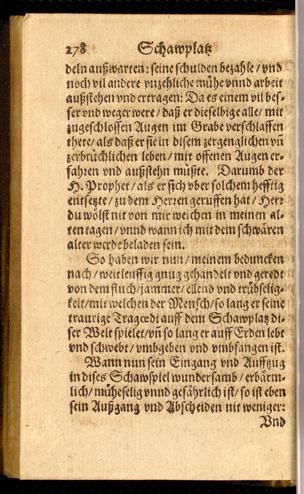 278 Schawplatz
deln außwarten: seine schulden bezahle / vnd
noch vil andere vnzehliche mühe vnnd arbeit
außstehen vnd ertragen: Da es einem vil bes-
ser vnd weger were / daß er dieselbige alle / mit
zugeschlossen Augen im Grabe verschlaffen
thete / als daß er sie in disem zergenglichen vñ
zerbrüchlichen leben / mit offenen Augen er-
fahren vnd außstehn müßte. Darumb der
H. Prophet / als er sich vber solchem hefftig
entsetzte / zu dem Herren geruffen hat / Herr
du wölst nit von mir weichen in meinen al-
ten tagen / vnnd wann ich mit dem schwären
alter werde beladen sein.
So haben wir nun / meinem beduncken
nach / weitleuffig gnug gehandelt vnd geredt
von dem fluch / jammer / ellend vnd trübselig-
keit / mit welchen der Mensch / so lang er seine
traurige Tragœdi auff dem Schawplatz di-
ser Welt spielet / vñ so lang er auff Erden lebt
vnd schwebt / vmbgeben vnd vmbfangen ist.
Wann nun sein Eingang vnd Auffzug
in dises Schawspiel wundersamb / erbärm-
lich / müheselig vnnd gefährlich ist / so ist eben
sein Außgang vnd Abscheiden nit weniger:
Vnd